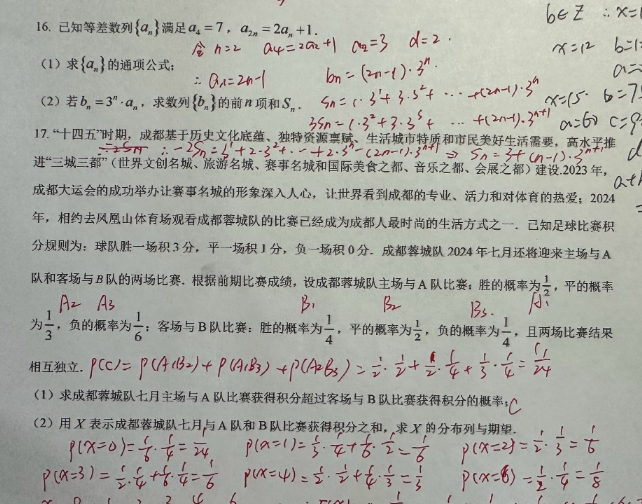 b∈Z ∴x=1
16. 已知等差数列{aₙ}满足a₄=7，a₂ₙ=2aₙ+1.
令n=2 a₄=2a₂+1 a₂=3 d=2.
x=12 b=1
（1）求{aₙ}的通项公式；
∴aₙ=2n-1 bₙ=(2n-1)·3ⁿ.
（2）若bₙ=3ⁿ·aₙ，求数列{bₙ}的前n项和Sₙ.
Sₙ=1·3¹+3·3²+ ··· +(2n-1)·3ⁿ
x=15. b=7
3Sₙ=1·3²+3·3³+ ··· +(2n-1)·3ⁿ⁺¹
a=60
17. “十四五”时期，成都基于历史文化底蕴、独特资源禀赋、生活城市特质和市民美好生活需要，高水平推
∴-2Sₙ=3¹+2·3²+···+2·3ⁿ-(2n-1)·3ⁿ⁺¹ ⇒ Sₙ=3+(n-1)·3ⁿ⁺¹
进“三城三都”（世界文创名城、旅游名城、赛事名城和国际美食之都、音乐之都、会展之都）建设.2023年，
成都大运会的成功举办让赛事名城的形象深入人心，让世界看到成都的专业、活力和对体育的热爱；2024
年，相约去凤凰山体育场观看成都蓉城队的比赛已经成为成都人最时尚的生活方式之一．已知足球比赛积
分规则为：球队胜一场积3分，平一场积1分，负一场积0分．成都蓉城队2024年七月还将迎来主场与A
队和客场与B队的两场比赛．根据前期比赛成绩，设成都蓉城队主场与A队比赛：胜的概率为1/2，平的概率
A₂ A₃ B₁ B₂ B₃. A₁
为1/3，负的概率为1/6；客场与B队比赛：胜的概率为1/4，平的概率为1/2，负的概率为1/4，且两场比赛结果
相互独立．P(C)=P(A₁B₂)+P(A₁B₃)+P(A₂B₃)=1/2·1/2+1/2·1/4+1/3·1/4=11/24
（1）求成都蓉城队七月主场与A队比赛获得积分超过客场与B队比赛获得积分的概率；C
（2）用X表示成都蓉城队七月与A队和B队比赛获得积分之和，求X的分布列与期望．
P(X=0)=1/6·1/4=1/24 P(X=1)=1/3·1/4+1/6·1/2=1/6 P(X=2)=1/2·1/3=1/6
P(X=3)=1/2·1/4+1/6·1/4=1/6 P(X=4)=1/2·1/2+1/4·1/3=1/3 P(X=6)=1/2·1/4=1/8